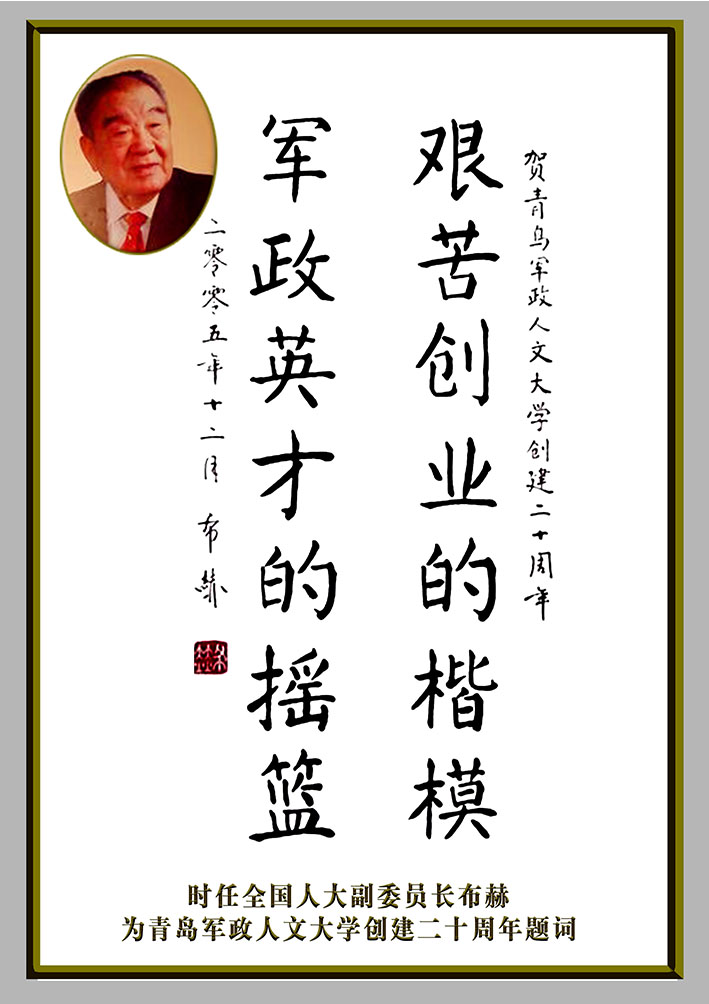 贺青岛军政人文大学创建二十周年
艰苦创业的楷模
军政英才的摇篮
二零零五年十二月 布赫
时任全国人大副委员长布赫
为青岛军政人文大学创建二十周年题词